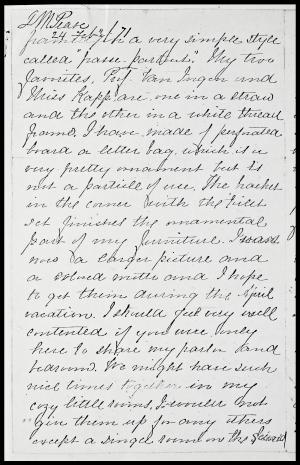 J M Pease
24 Feb
in a very simple style
called "passe-partout." My two
favorites, Prof. Van Ingen and
Miss Kapp are one in a straw
and the other in a white thread
frame. I have made of perforated
board a letter bag, which is a
very pretty ornament but is
not a particle of use. The basket
in the corner with the toilet
set finishes the ornamental
part of my furniture. I want
now a larger picture and
a colored motto and I hope
to get them during the April
vacation. I should feel very well
contented if you were only
here to share my parlor and
bedroom. We might have such
nice times together in my
cozy little rooms. I would not
give them up for any others
except a single room on the second